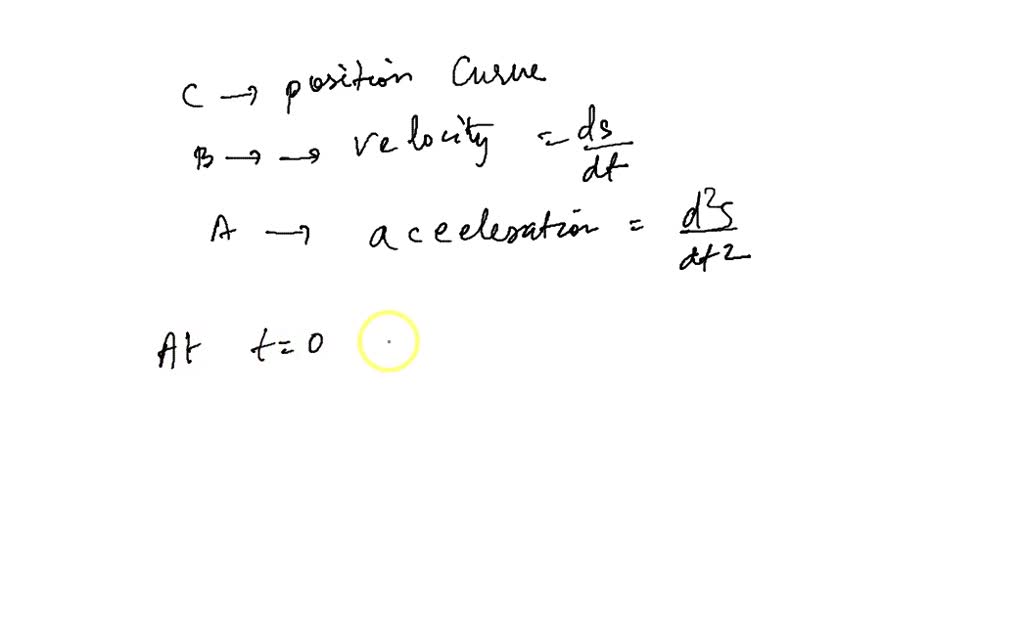 C → position Curve
B → → velocity = ds/dt
A → aceeleration = d²s/dt2
At t = 0